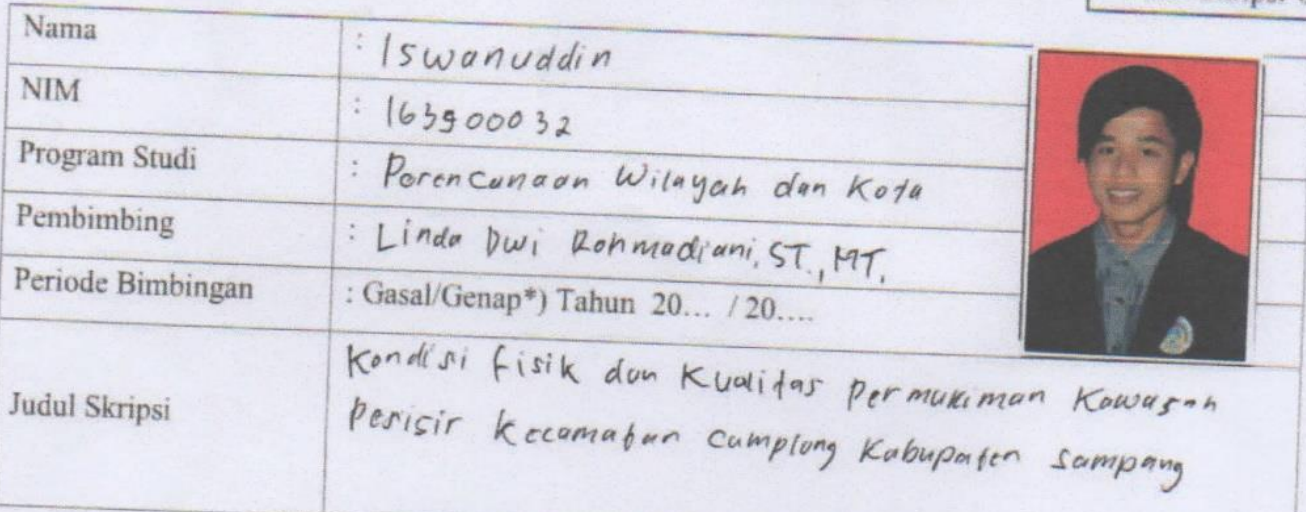 Nama : Iswanuddin
NIM : 163900032
Program Studi : Perencanaan Wilayah dan Kota
Pembimbing : Linda Dwi Rohmadiani, ST., MT.
Periode Bimbingan : Gasal/Genap*) Tahun 20... / 20....
Judul Skripsi
Kondisi fisik dan Kualitas Permukiman Kawasan
Pesisir Kecamatan Camplong Kabupaten Sampang